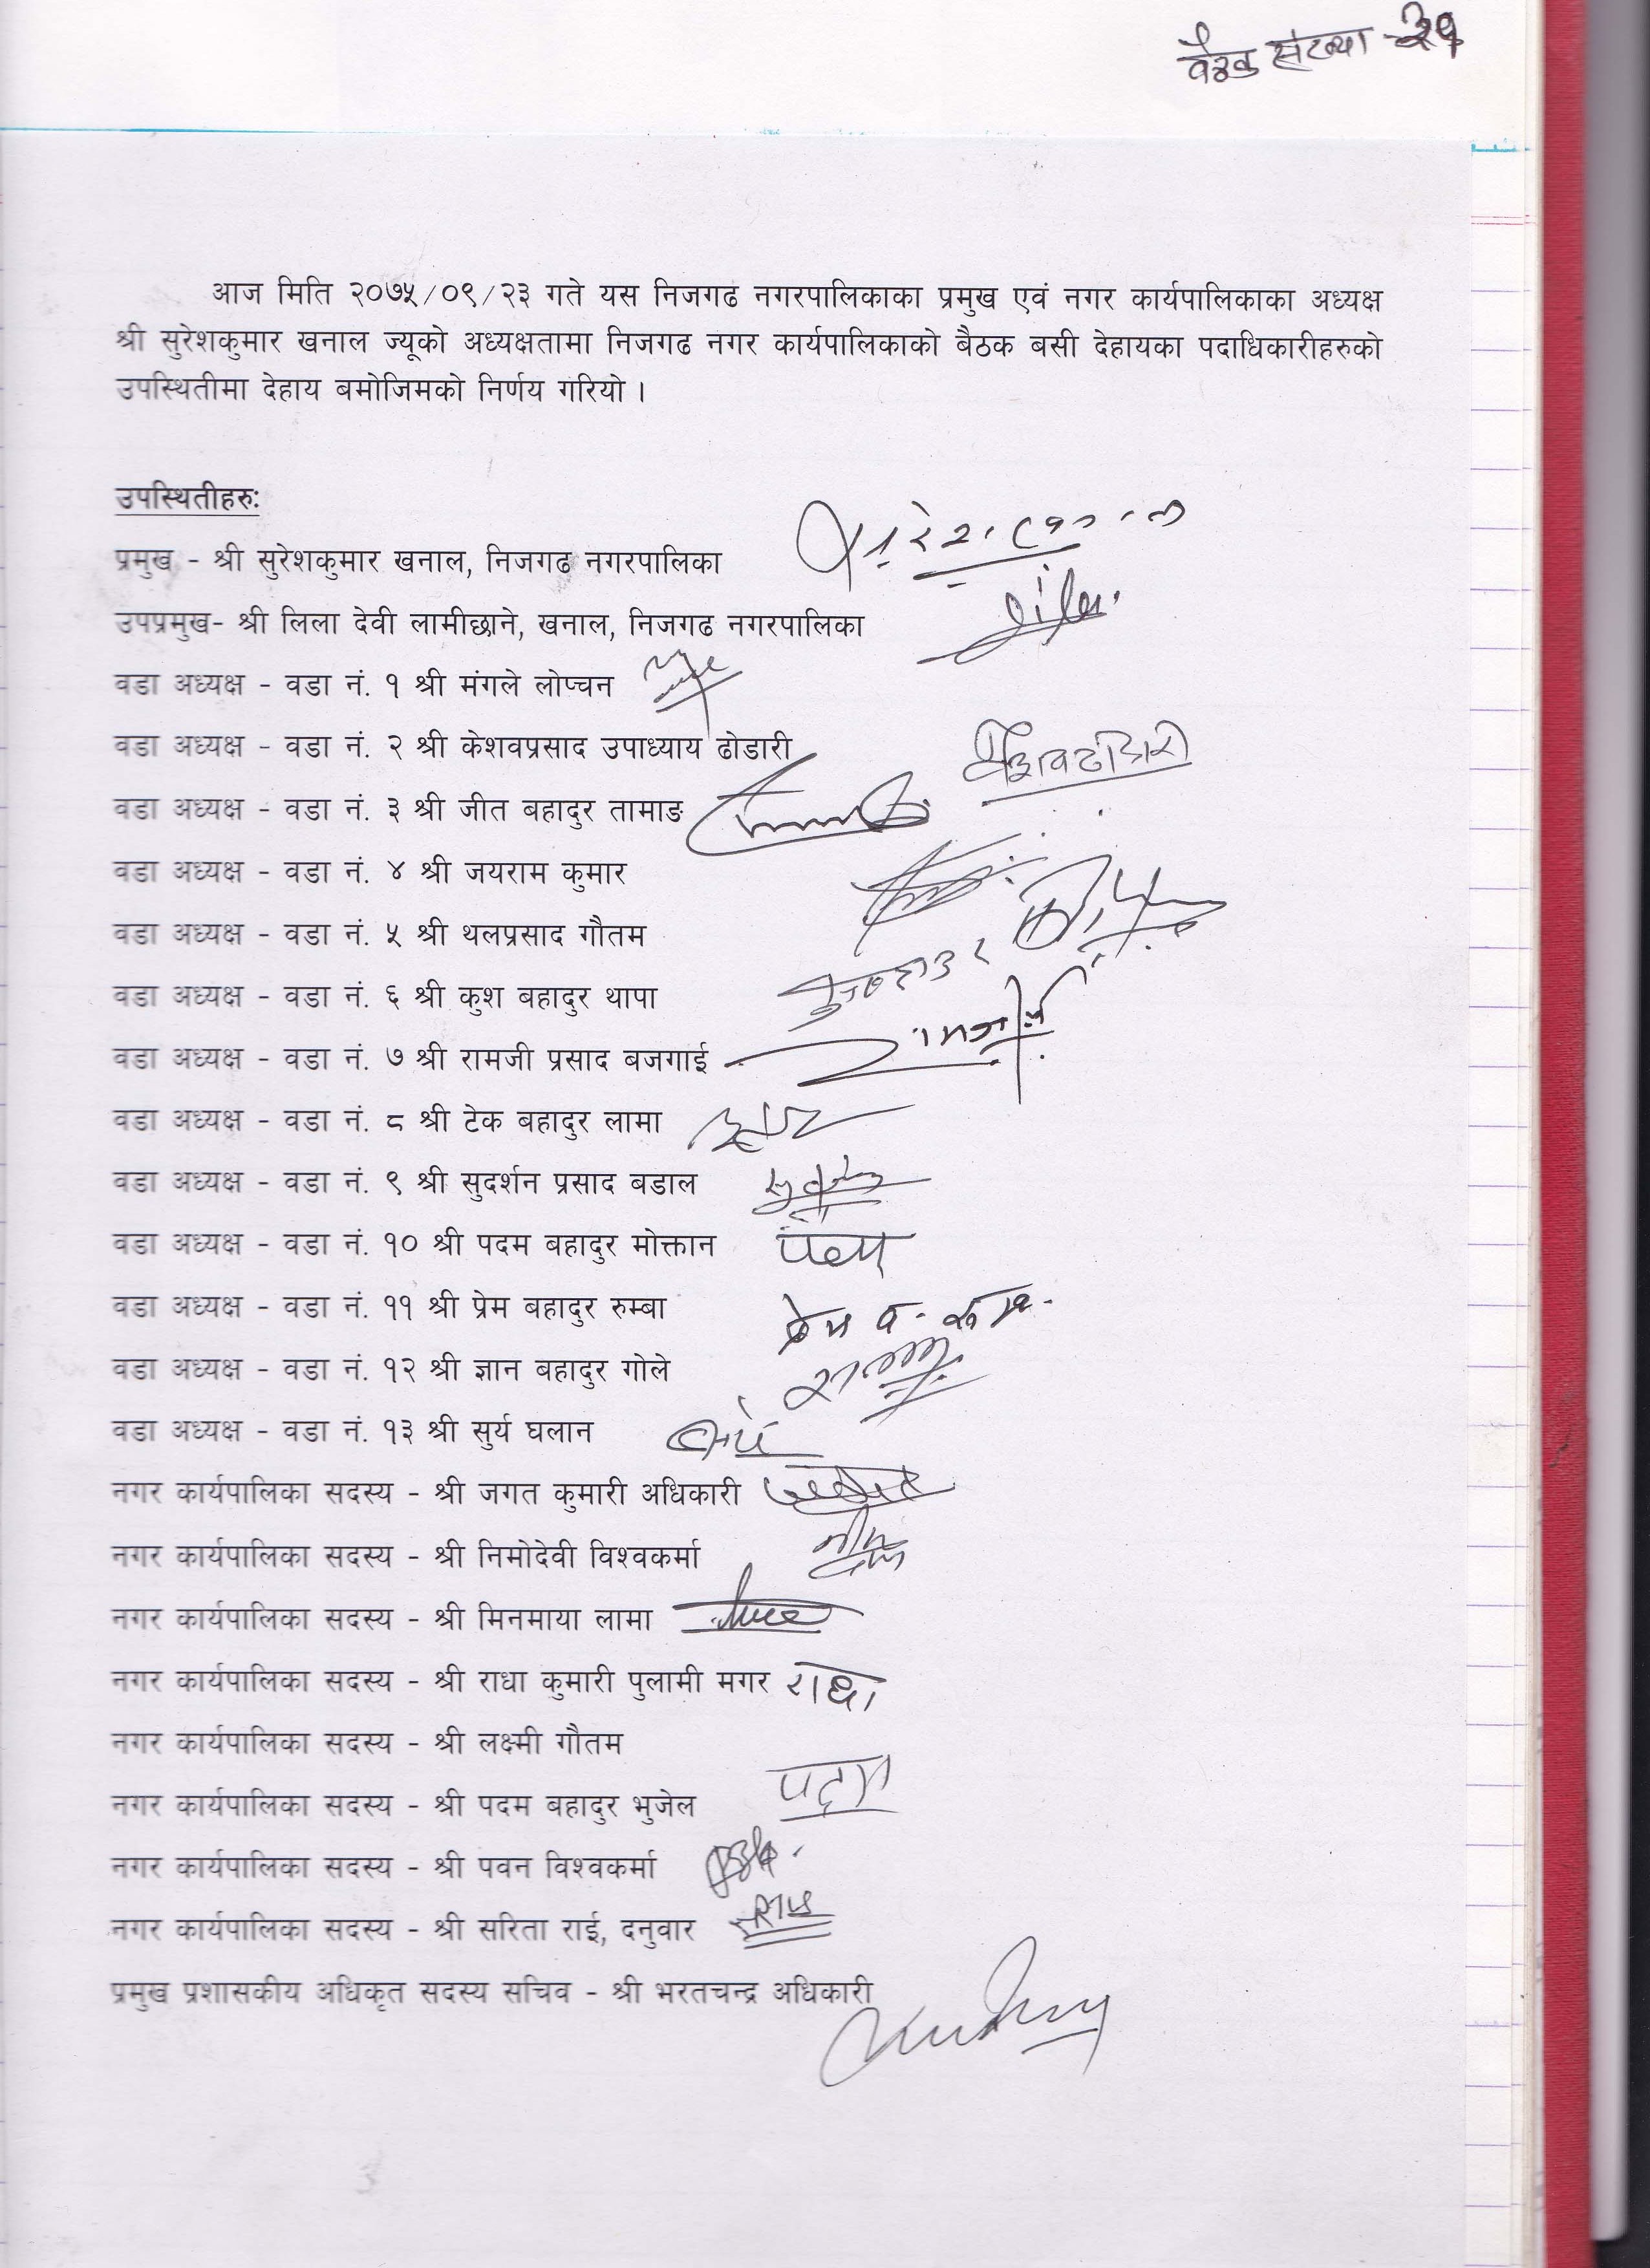 बैठक संख्या - ३१
आज मिति २०७५/०९/२३ गते यस निजगढ नगरपालिकाका प्रमुख एवं नगर कार्यपालिकाका अध्यक्ष
श्री सुरेशकुमार खनाल ज्यूको अध्यक्षतामा निजगढ नगर कार्यपालिकाको बैठक बसी देहायका पदाधिकारीहरुको
उपस्थितीमा देहाय बमोजिमको निर्णय गरियो ।
उपस्थितीहरुः
प्रमुख - श्री सुरेशकुमार खनाल, निजगढ नगरपालिका
उपप्रमुख- श्री लिला देवी लामीछाने, खनाल, निजगढ नगरपालिका
वडा अध्यक्ष - वडा नं. १ श्री मंगले लोप्चन
वडा अध्यक्ष - वडा नं. २ श्री केशवप्रसाद उपाध्याय ढोडारी
वडा अध्यक्ष - वडा नं. ३ श्री जीत बहादुर तामाङ
वडा अध्यक्ष - वडा नं. ४ श्री जयराम कुमार
वडा अध्यक्ष - वडा नं. ५ श्री थलप्रसाद गौतम
वडा अध्यक्ष - वडा नं. ६ श्री कुश बहादुर थापा
वडा अध्यक्ष - वडा नं. ७ श्री रामजी प्रसाद बजगाई
वडा अध्यक्ष - वडा नं. ८ श्री टेक बहादुर लामा
वडा अध्यक्ष - वडा नं. ९ श्री सुदर्शन प्रसाद बडाल
वडा अध्यक्ष - वडा नं. १० श्री पदम बहादुर मोक्तान
वडा अध्यक्ष - वडा नं. ११ श्री प्रेम बहादुर रुम्बा
वडा अध्यक्ष - वडा नं. १२ श्री ज्ञान बहादुर गोले
वडा अध्यक्ष - वडा नं. १३ श्री सुर्य घलान
नगर कार्यपालिका सदस्य - श्री जगत कुमारी अधिकारी
नगर कार्यपालिका सदस्य - श्री निमोदेवी विश्वकर्मा
नगर कार्यपालिका सदस्य - श्री मिनमाया लामा
नगर कार्यपालिका सदस्य - श्री राधा कुमारी पुलामी मगर राधा
नगर कार्यपालिका सदस्य - श्री लक्ष्मी गौतम
नगर कार्यपालिका सदस्य - श्री पदम बहादुर भुजेल पदम
नगर कार्यपालिका सदस्य - श्री पवन विश्वकर्मा
नगर कार्यपालिका सदस्य - श्री सरिता राई, दनुवार
प्रमुख प्रशासकीय अधिकृत सदस्य सचिव - श्री भरतचन्द्र अधिकारी